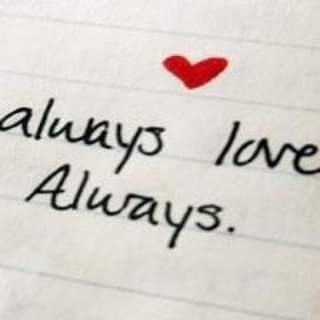 always love
Always.